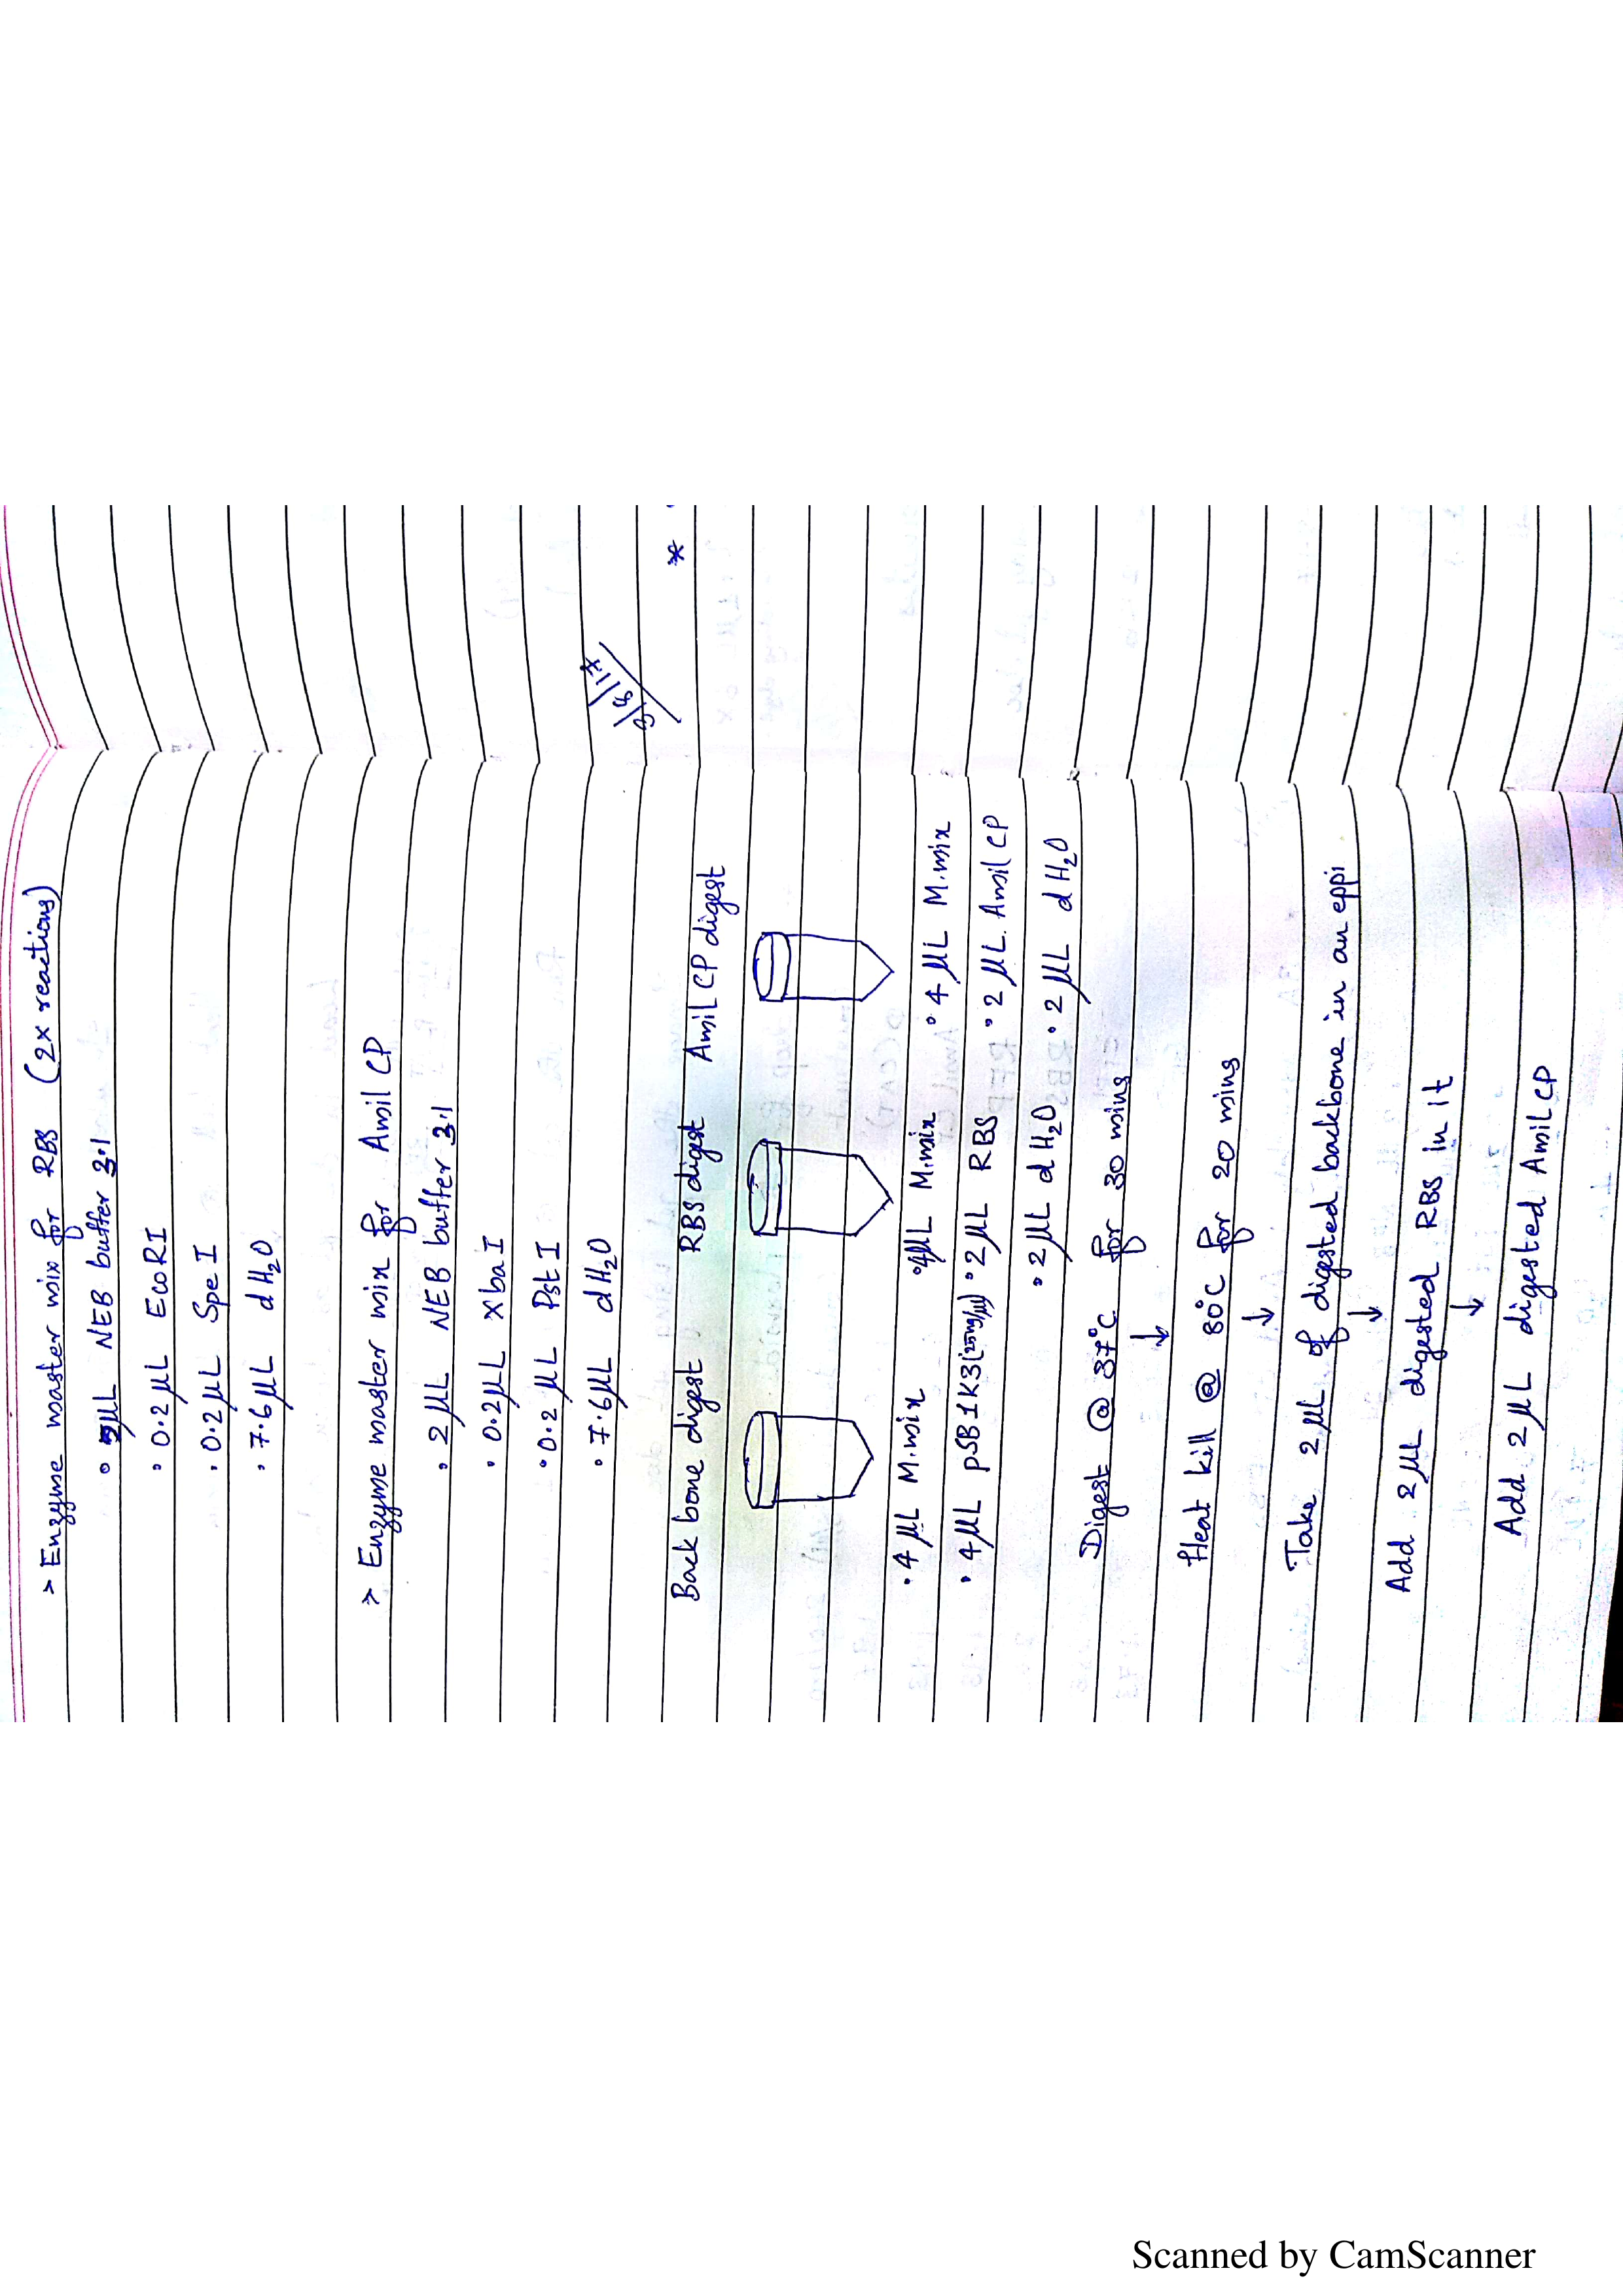 > Enzyme master mix for RBS (2x reactions)
• 2µL NEB buffer 3.1
• 0.2µL EcoRI
• 0.2µL SpeI
• 7.6µL dH2O
> Enzyme master mix for Amil CP
• 2µL NEB buffer 3.1
• 0.2µL xbaI
• 0.2µL PstI
• 7.6µL dH2O
*
Back bone digest RBS digest Amil CP digest
• 4µL M.mix • 4µL M.mix • 4µL M.mix
• 4µL pSB1K3(25ng/µl) • 2µL RBS • 2µL Amil CP
• 2µL dH2O • 2µL dH2O
Digest @ 37°C for 30 mins
↓
Heat kill @ 80°C for 20 mins
↓
Take 2µL of digested backbone in an eppi
↓
Add 2µL digested RBS in it
↓
Add 2µL digested Amil CP
Scanned by CamScanner